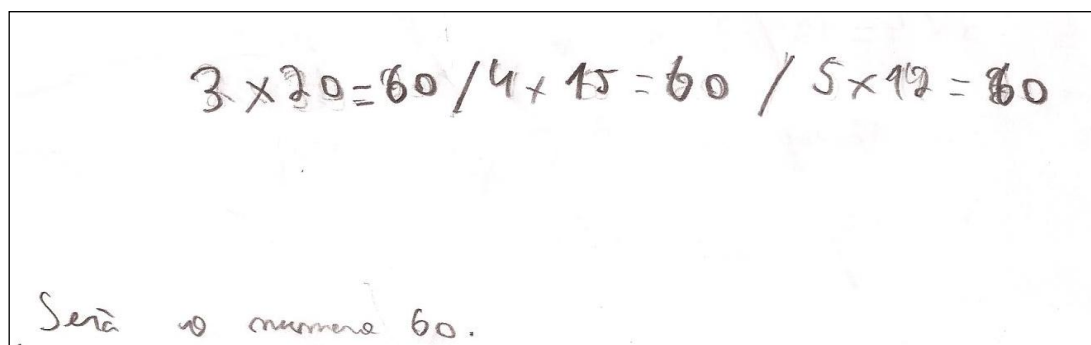 3 × 20 = 60 / 4 × 15 = 60 / 5 × 12 = 60
Será o numero 60.